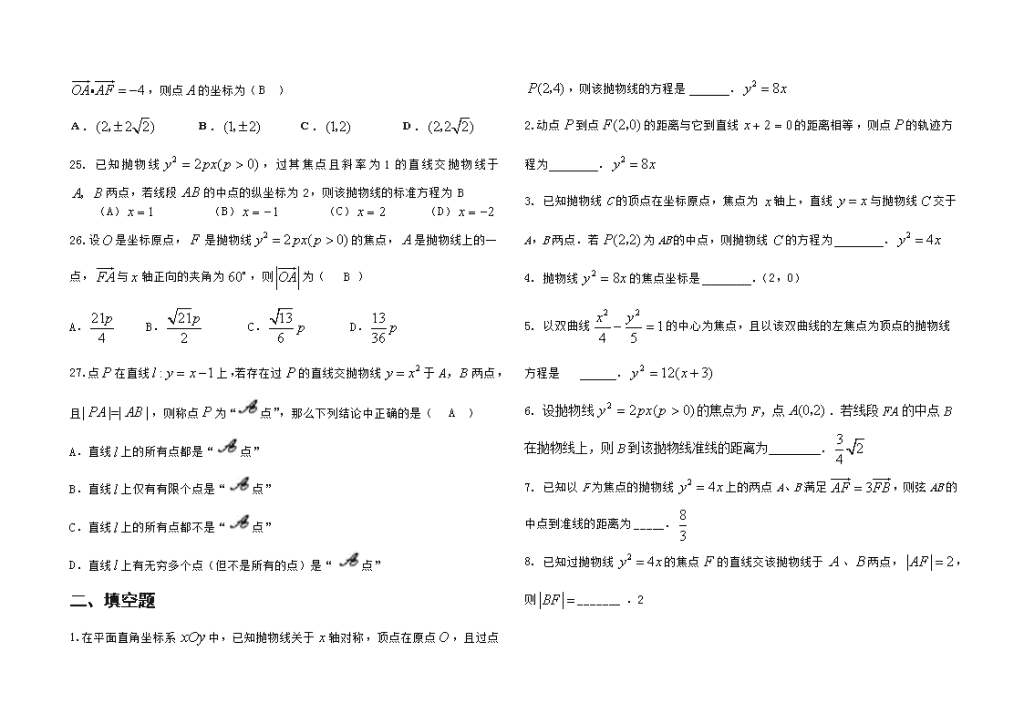 $\overrightarrow{OA}\bullet\overrightarrow{AF}=-4$，则点A的坐标为（B ）
A．$(2,\pm2\sqrt{2})$ B．$(1,\pm2)$ C．$(1,2)$ D．$(2,2\sqrt{2})$
25．已知抛物线$y^2=2px(p>0)$，过其焦点且斜率为1的直线交抛物线于
A，B两点，若线段AB的中点的纵坐标为2，则该抛物线的标准方程为 B
（A）$x=1$ （B）$x=-1$ （C）$x=2$ （D）$x=-2$
26.设O是坐标原点，F是抛物线$y^2=2px(p>0)$的焦点，A是抛物线上的一
点，$\overrightarrow{FA}$与x轴正向的夹角为60°，则$|\overrightarrow{OA}|$为（ B ）
A．$\frac{21p}{4}$ B．$\frac{\sqrt{21}p}{2}$ C．$\frac{\sqrt{13}}{6}p$ D．$\frac{13}{36}p$
27.点P在直线$l:y=x-1$上,若存在过P的直线交抛物线$y=x^2$于A，B两点，
且$|PA|=|AB|$，则称点P为“𝒜点”，那么下列结论中正确的是（ A ）
A．直线l上的所有点都是“𝒜点”
B．直线l上仅有有限个点是“𝒜点”
C．直线l上的所有点都不是“𝒜点”
D．直线l上有无穷多个点（但不是所有的点）是“𝒜点”
二、填空题
1.在平面直角坐标系xOy中，已知抛物线关于x轴对称，顶点在原点O，且过点
$P(2,4)$，则该抛物线的方程是______．$y^2=8x$
2.动点P到点$F(2,0)$的距离与它到直线$x+2=0$的距离相等，则点P的轨迹方
程为_______．$y^2=8x$
3．已知抛物线C的顶点在坐标原点，焦点为x轴上，直线$y=x$与抛物线C交于
A，B两点．若$P(2,2)$为AB的中点，则抛物线C的方程为_______．$y^2=4x$
4．抛物线$y^2=8x$的焦点坐标是_______．(2，0)
5．以双曲线$\frac{x^2}{4}-\frac{y^2}{5}=1$的中心为焦点，且以该双曲线的左焦点为顶点的抛物线
方程是 _____．$y^2=12(x+3)$
6．设抛物线$y^2=2px(p>0)$的焦点为F，点$A(0,2)$．若线段FA的中点B
在抛物线上，则B到该抛物线准线的距离为_______．$\frac{3}{4}\sqrt{2}$
7．已知以F为焦点的抛物线$y^2=4x$上的两点A、B满足$\overrightarrow{AF}=3\overrightarrow{FB}$，则弦AB的
中点到准线的距离为____．$\frac{8}{3}$
8．已知过抛物线$y^2=4x$的焦点F的直线交该抛物线于A、B两点，$|AF|=2$，
则$|BF|=$______ ．2